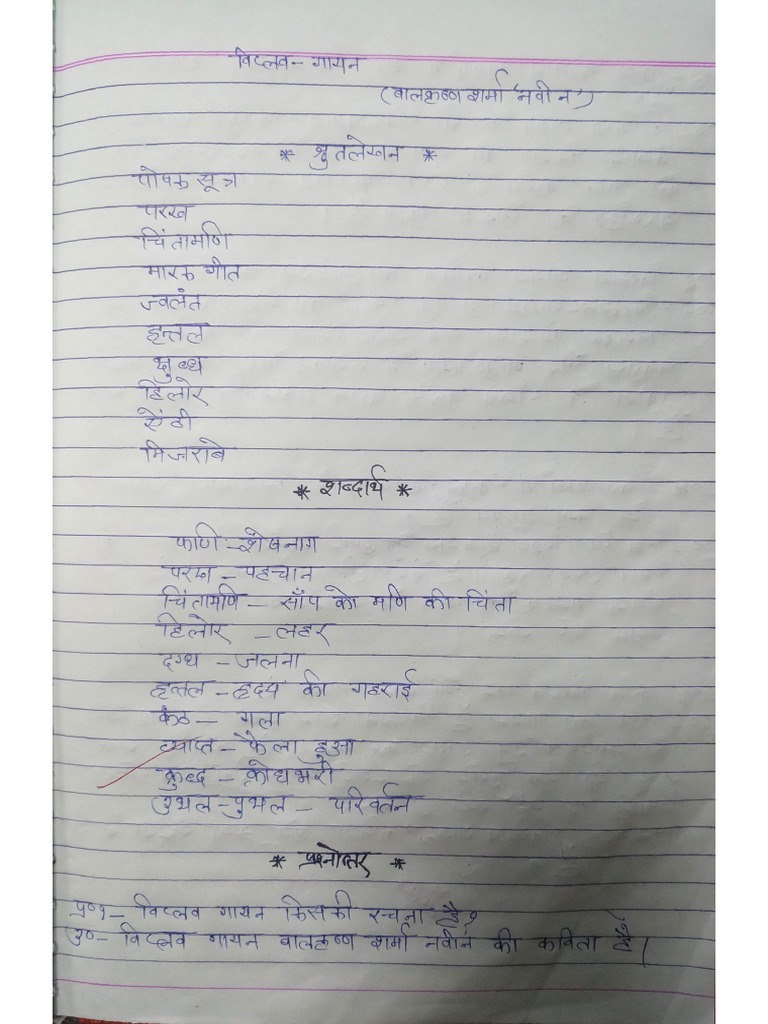 विप्लव - गायन
(बालकृष्ण शर्मा 'नवीन')
* श्रुतलेखन *
पोषक सूत्र
परख
चिंतामणि
मारक गीत
ज्वलंत
हृत्तल
क्षुब्ध
हिलोर
ऐंठी
मिजराबे
* शब्दार्थ *
फणि - शेषनाग
परख - पहचान
चिंतामणि - साँप को मणि की चिंता
हिलोर - लहर
दग्ध - जलना
हृत्तल - हृदय की गहराई
कंठ - गला
व्याप्त - फैला हुआ
क्रुद्ध - क्रोधभरी
उथल-पुथल - परिवर्तन
* प्रश्नोत्तर *
प्र०१ - विप्लव गायन किसकी रचना है?
उ० - विप्लव गायन बालकृष्ण शर्मा नवीन की कविता है।